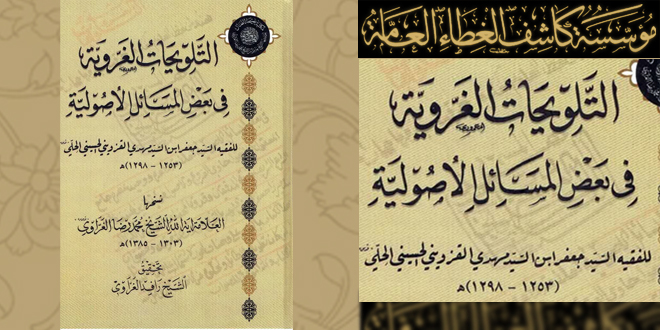 التَّلْوِيحَاتُ الغَرَوِيَّة
فِي بَعْضِ المَسَائِلِ الأُصُولِيَّة
للفقيه السيّد جعفر ابن السيّد مهدي القزويني الحسيني الحلّي
(١٢٥٣ - ١٢٩٨)هـ
العلّامة آية الله الشيخ محمد رضا الغرّاوي
(١٣٠٣ - ١٣٨٥)هـ
تحقيق
الشيخ رافد الغرّاوي
مُؤَسَّسَةُ كَاشِفِ الغِطَاءِ العَامَّة
التَّلْوِيحَاتُ الغَرَوِيَّة
فِي بَعْضِ المَسَائِلِ الأُصُولِيَّة
للفقيه السيّد جعفر ابن السيّد مهدي القزويني الحسيني الحلّي
(١٢٥٣ - ١٢٩٨)